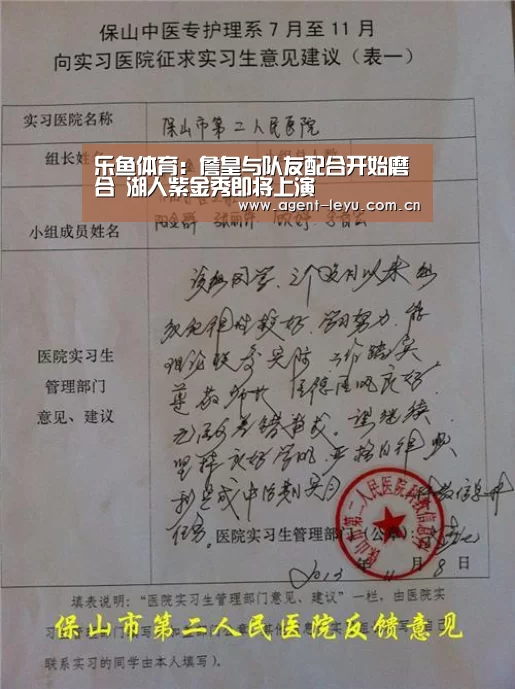 保山中医专护理系7月至11月
向实习医院征求实习生意见建议（表一）
实习医院名称
保山市第二人民医院
组长姓名
乐鱼体育：詹皇与队友配合开始磨
合 湖人紫金秀即将上演
www.agent-leyu.com.cn
小组成员姓名
医院实习生
管理部门
意见、建议
该组同学，三个多月以来
组织纪律性较好，学习努力，能
理论联系实际，工作踏实
尊敬师长，医德医风良好，
无医疗差错事故。望继续
坚持良好学风，严格自律，顺
利完成中后期实习
任务。
医院实习生管理部门（公章）：
保山市第二人民医院科教信息科
2013 11月8日
填表说明：“医院实习生管理部门意见、建议”一栏，由医院实
保山市第二人民医院反馈意见
联系实习的同学由本人填写）。